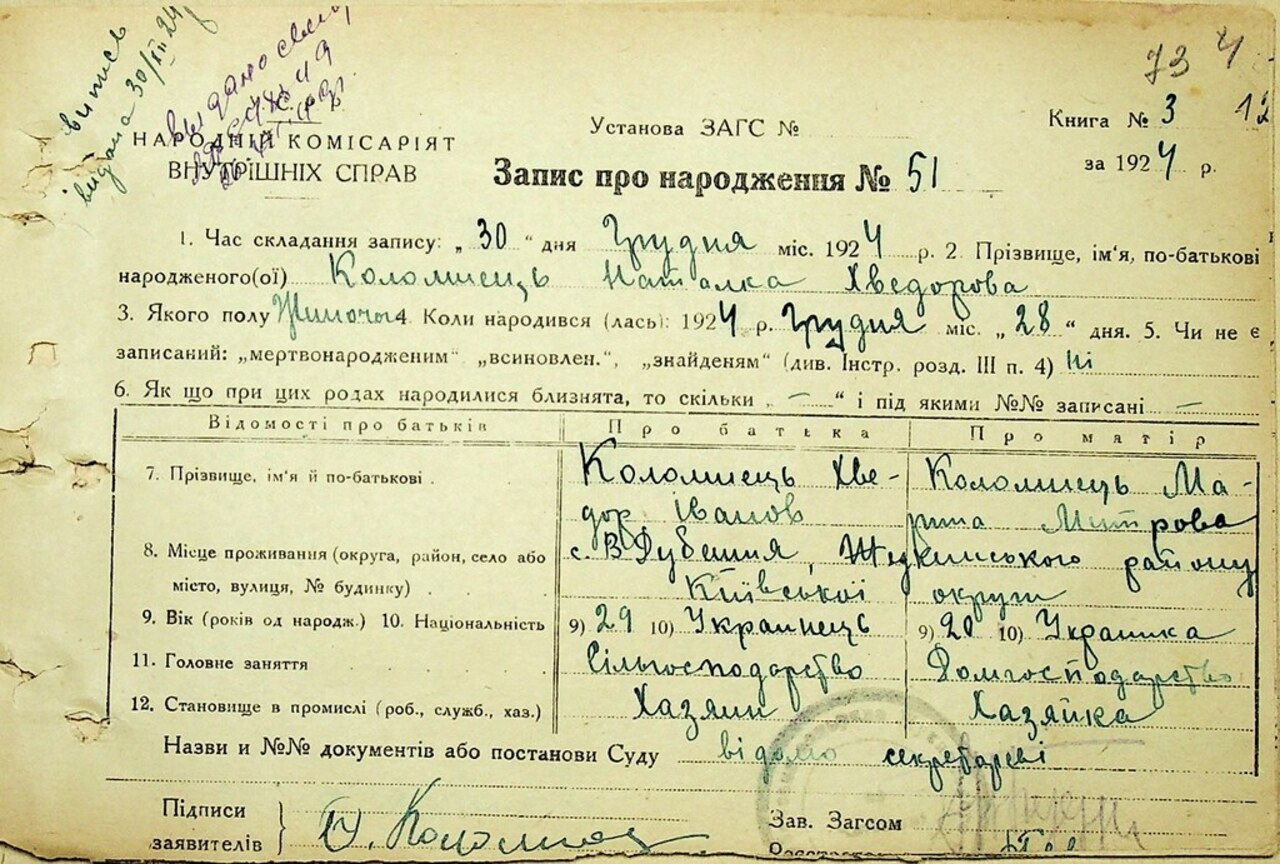 73 4
випись
видана 30/XII 24
Книга № 3 12
Установа ЗАГС №
НАРОДНІЙ КОМІСАРІЯТ
за 1924 р.
ВНУТРІШНІХ СПРАВ
Запис про народження № 51
1. Час складання запису: „30“ дня Грудня міс. 1924 р. 2. Прізвище, ім'я, по-батькові
народженого(ої) Коломиець Наталка Хведорова
3. Якого полу Жиночы 4. Коли народився (лась): 1924 р. Грудня міс. „28“ дня. 5. Чи не є
записаний: „мертвонародженим“ „всиновлен.“, „знайденям“ (див. Інстр. розд. III п. 4) Ні
6. Як що при цих родах народилися близнята, то скільки „ — “ і під якими №№ записані —
Відомості про батьків Про батька Про матір
7. Прізвище, ім'я й по-батькові Коломиець Хве- Коломиець Ма-
дор Іванов рина Митрова
8. Місце проживання (округа, район, село або с. В Дубечня, Жукинського району
місто, вулиця, № будинку) Київської округи
9. Вік (років од народж.) 10. Національність 9) 29 10) Украинець 9) 20 10) Украинка
11. Головне заняття Сільгосподарство Домгосподарство
12. Становище в промислі (роб., служб., хаз.) Хазяин Хазяйка
Назви и №№ документів або постанови Суду відомо секретареві
Підписи
заявителів
Коломиец
Зав. Загсом